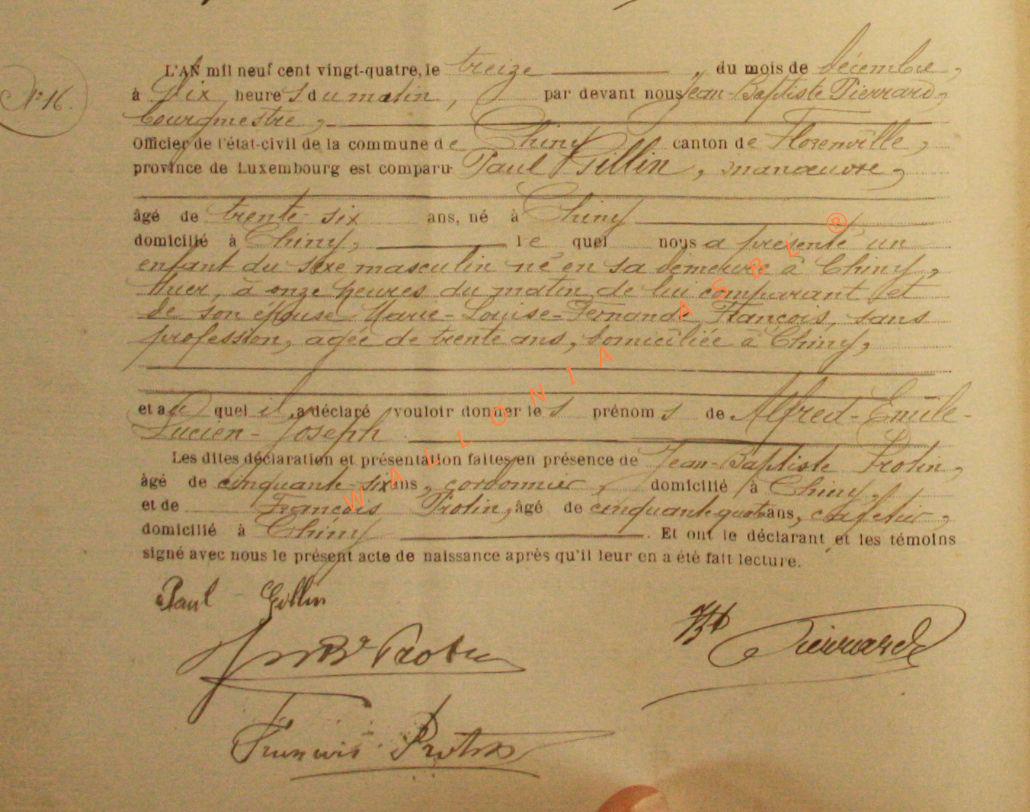 N° 16.
L'AN mil neuf cent vingt-quatre, le treize du mois de décembre,
à dix heures du matin, par devant nous Jean-Baptiste Pierrard,
bourgmestre,
Officier de l'état-civil de la commune de Chiny canton de Florenville,
province de Luxembourg est comparu Paul Gillin, manœuvre,
âgé de trente-six ans, né à Chiny
domicilié à Chiny, le quel nous a présenté un
enfant du sexe masculin né en sa demeure à Chiny,
hier, à onze heures du matin, de lui comparant et
de son épouse Marie-Louise-Fernande François, sans
profession, agée de trente ans, domiciliée à Chiny,
et au quel il a déclaré vouloir donner les prénoms de Alfred-Emile-
Lucien-Joseph
Les dites déclaration et présentation faites en présence de Jean-Baptiste Protin,
âgé de cinquante-six ans, cordonnier, domicilié à Chiny,
et de François Protin, âgé de cinquante-quatre ans, cafetier,
domicilié à Chiny. Et ont le déclarant et les témoins
signé avec nous le présent acte de naissance après qu'il leur en a été fait lecture.
Paul Gillin
Protin
Pierrard
François Protin
WALLONIA ASBL ®